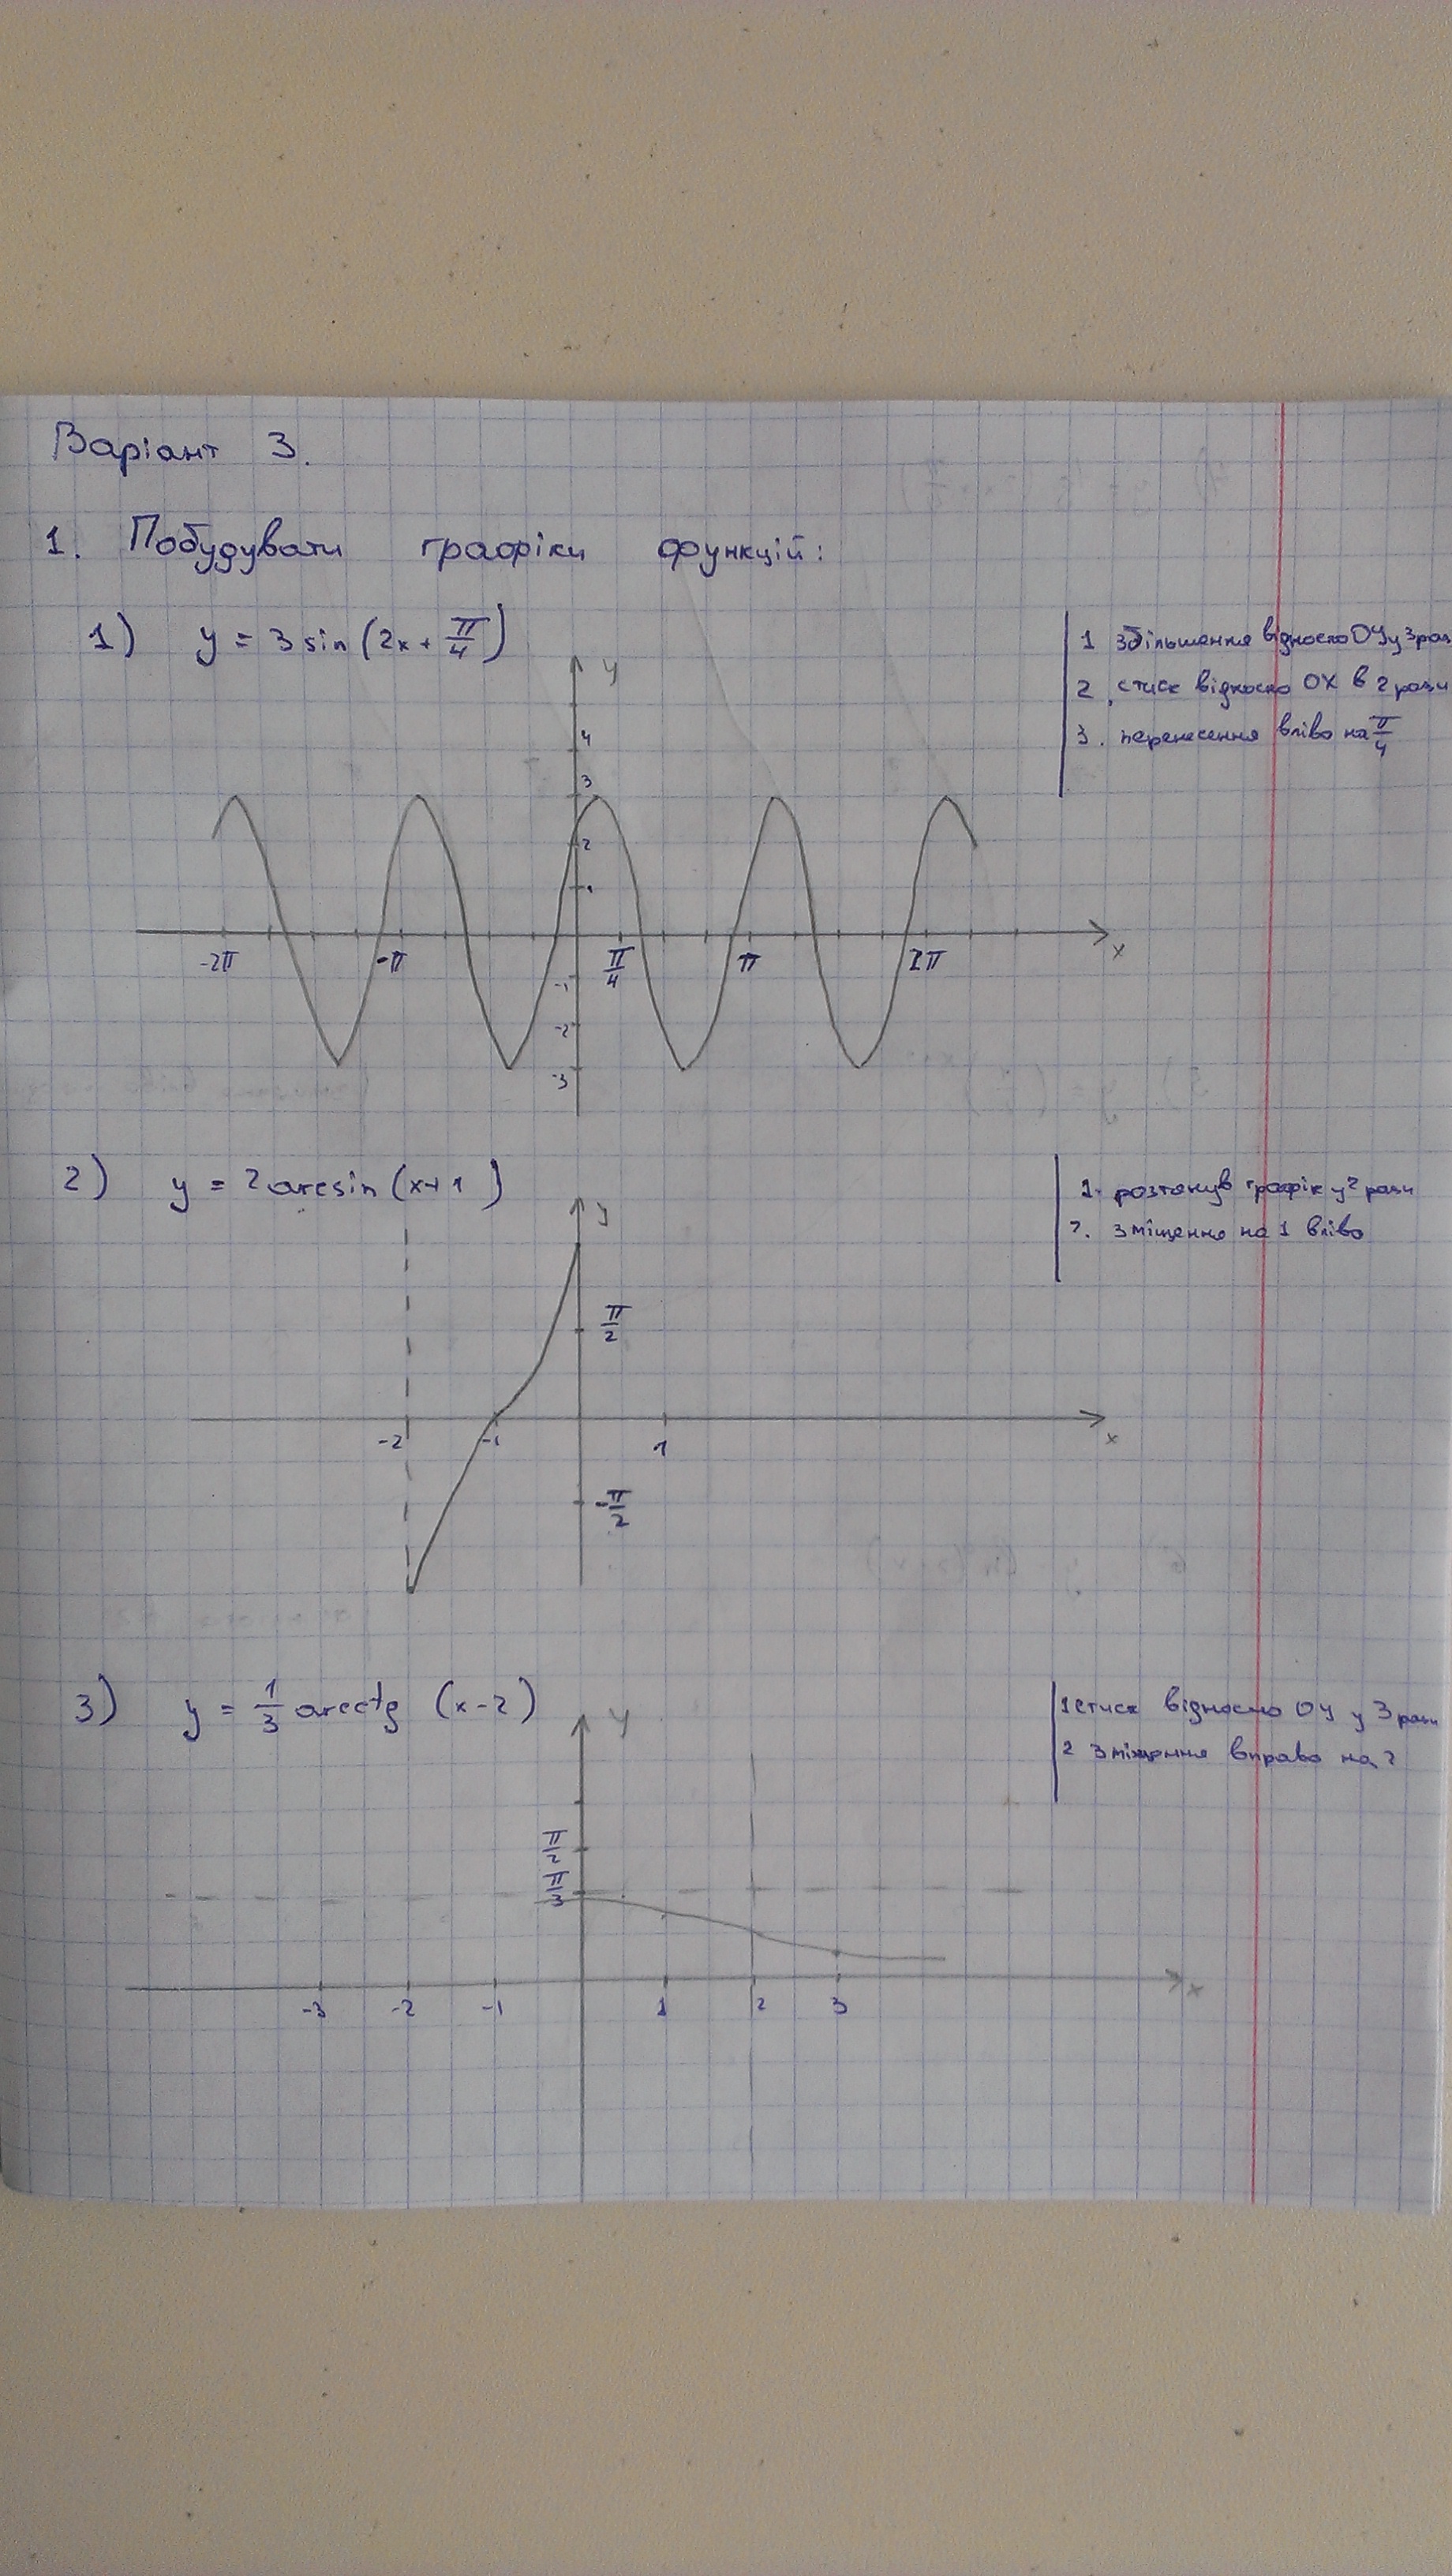 Варіант 3.
1. Побудувати графіки функцій:
1) y = 3 sin (2x + π/4)
1 збільшення відносно OY у 3 раз
2. стиск відносно OX в 2 рази
3. перенесення вліво на π/4
y
4
3
2
1
-2π -π π/4 π 2π x
-1
-2
-3
2) y = 2 arcsin (x+1)
1. розтянув графік у 2 рази
2. зміщення на 1 вліво
y
π/2
-2 -1 1 x
-π/2
3) y = 1/3 arcctg (x-2)
1 стиск відносно OY у 3 рази
2 зміщення вправо на 2
y
π/2
π/3
-3 -2 -1 1 2 3 x